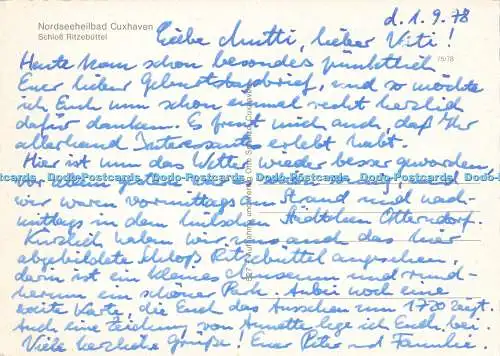 Nordseeheilbad Cuxhaven
Schloß Ritzebüttel
d. 1.9.78
Liebe Mutti, lieber Vati!
Heute kam schon besonders pünktlich
Euer lieber Geburtstagsbrief, und so möchte
ich Euch nun schon einmal recht herzlich
dafür danken. Es freut mich auch, daß Ihr
allerhand Interessantes erlebt habt.
Hier ist nun das Wetter wieder besser geworden,
vor allem gestern war
Dodo-Postcards Dodo-Postcards Dodo-Postcards Dodo-Postcards Dodo-Postcards
wir waren vormittags am Strand und nach-
mittags in dem hübschen Städtchen Otterndorf.
Kürzlich haben wir uns auch das hier
abgebildete Schloß Ritzebüttel angesehen,
darin ist ein kleines Museum und rund-
herum ein schöner Park. Anbei noch eine
zweite Karte, die Euch das Aussehen um 1720 zeigt.
Auch eine Zeichnung von Annette lege ich Euch bei.
Viele herzliche Grüße! Euer Peter und Familie.